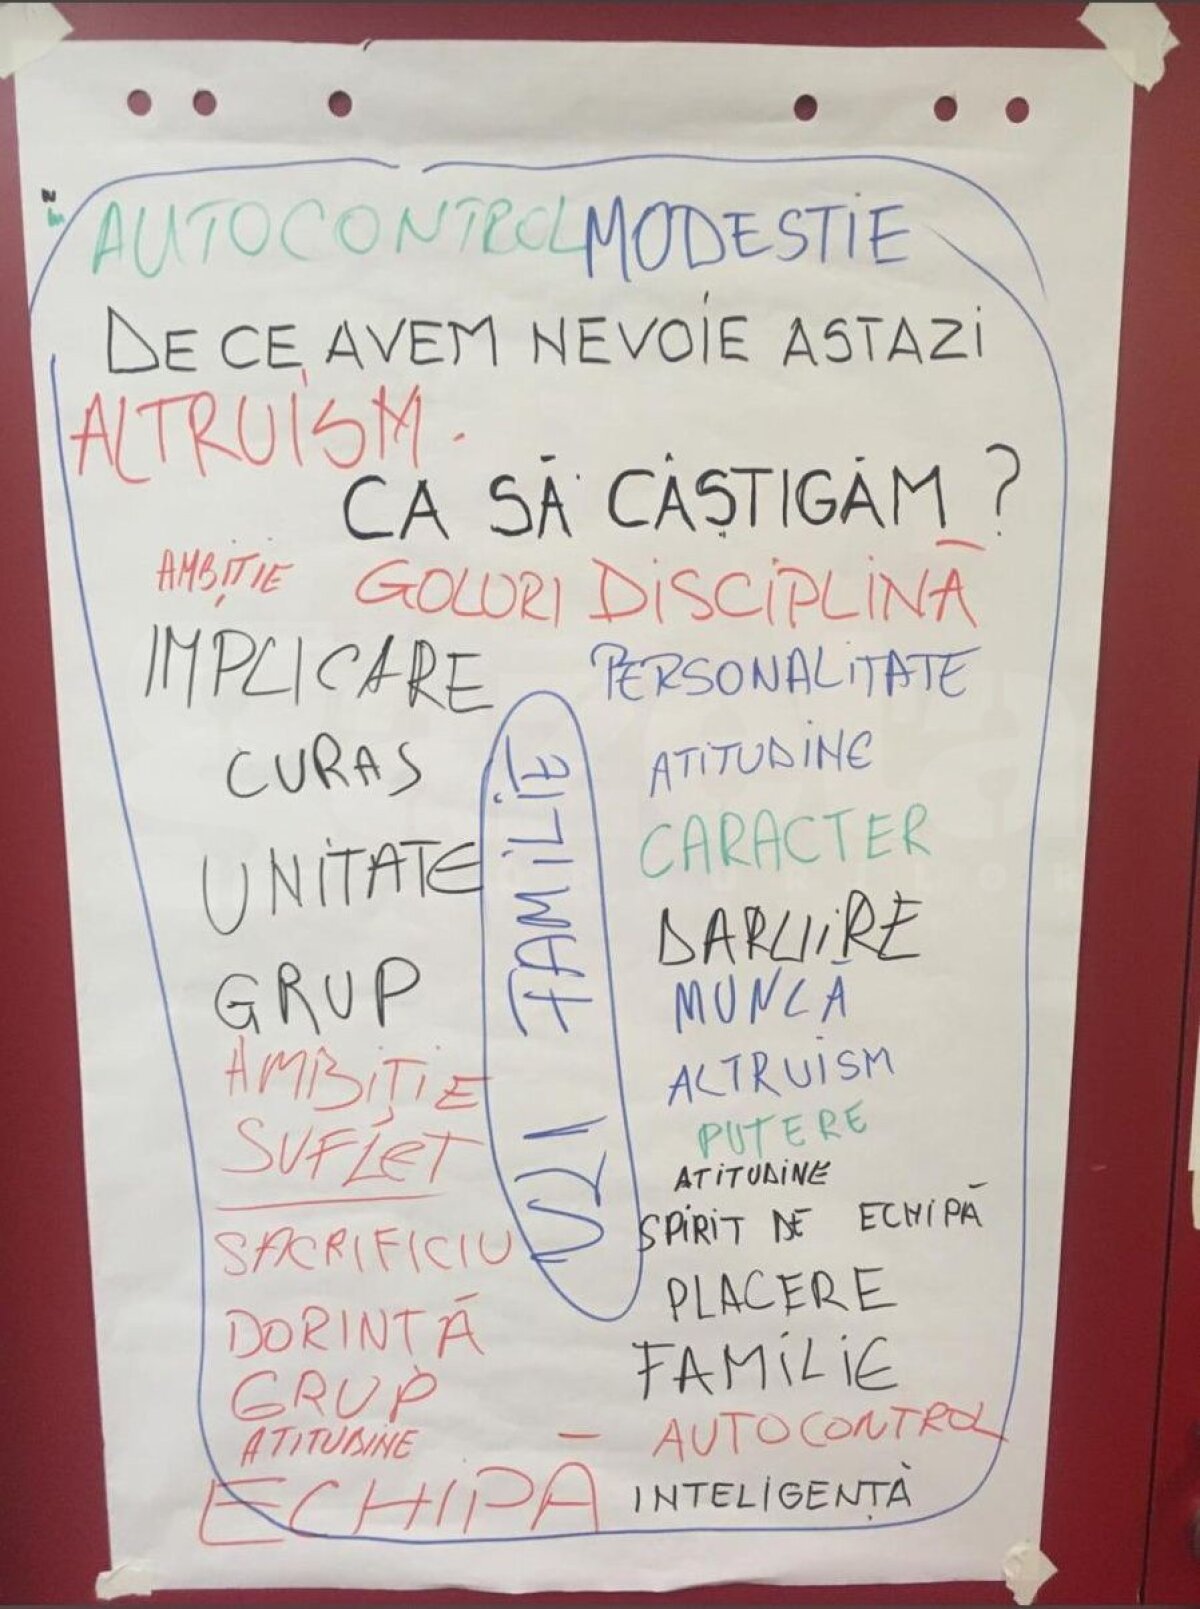 AUTOCONTROL MODESTIE
DE CE AVEM NEVOIE ASTAZI
ALTRUISM.
CA SĂ CÂȘTIGĂM ?
AMBIȚIE GOLURI DISCIPLINĂ
IMPLICARE PERSONALITATE
CURAS ATITUDINE
UNITATE CARACTER
GRUP DARUIRE
AMBIȚIE MUNCĂ
SUFLET ALTRUISM
SACRIFICIU PUTERE
DORINTĂ ATITUDINE
GRUP SPIRIT DE ECHIPĂ
ATITUDINE PLACERE
ECHIPĂ FAMILIE
AUTOCONTROL
INTELIGENȚĂ
U21 FAMILIE